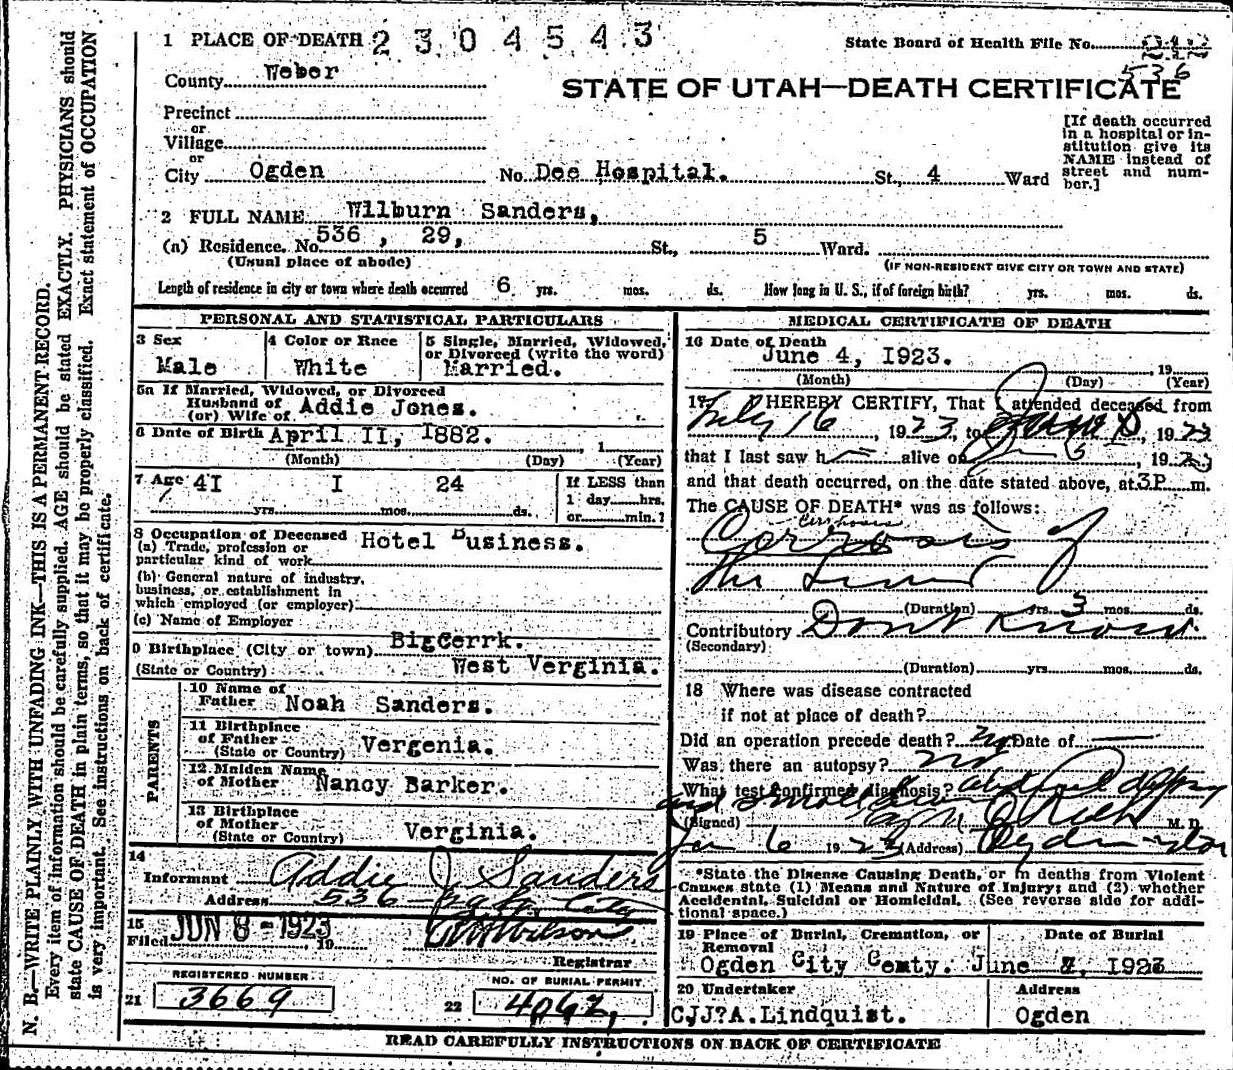 N. B.—WRITE PLAINLY WITH UNFADING INK—THIS IS A PERMANENT RECORD.
Every item of information should be carefully supplied. AGE should be stated EXACTLY. PHYSICIANS should
state CAUSE OF DEATH in plain terms, so that it may be properly classified. Exact statement of OCCUPATION
is very important. See instructions on back of certificate.
1 PLACE OF DEATH 2304543
State Board of Health File No.
536
County Weber
STATE OF UTAH—DEATH CERTIFICATE
Precinct
or
Village
or
City Ogden No. Dee Hospital. St., 4 Ward
[If death occurred
in a hospital or in-
stitution give its
NAME instead of
street and num-
ber.]
2 FULL NAME Wilburn Sanders,
(a) Residence. No. 536 , 29, St., 5 Ward.
(Usual place of abode)
(IF NON-RESIDENT GIVE CITY OR TOWN AND STATE)
Length of residence in city or town where death occurred 6 yrs. mos. ds. How long in U. S., if of foreign birth? yrs. mos. ds.
PERSONAL AND STATISTICAL PARTICULARS
3 Sex
Male
4 Color or Race
White
5 Single, Married, Widowed,
or Divorced (write the word)
Married.
5a If Married, Widowed, or Divorced
Husband of
(or) Wife of Addie Jones.
6 Date of Birth April II, I882. 1
(Month) (Day) (Year)
7 Age 4I yrs. I mos. 24 ds.
If LESS than
1 day hrs.
or min.?
8 Occupation of Deceased
(a) Trade, profession or
particular kind of work Hotel Business.
(b) General nature of industry,
business, or establishment in
which employed (or employer)
(c) Name of Employer
9 Birthplace (City or town) BigCerrk.
(State or Country) West Verginia.
PARENTS
10 Name of
Father Noah Sanders.
11 Birthplace
of Father
(State or Country) Vergenia.
12 Maiden Name
of Mother Nancy Barker.
13 Birthplace
of Mother
(State or Country) Verginia.
14
Informant Addie J Sanders
Address 536 City
15
Filed JUN 8 - 1923 19
Wilson
Registrar
REGISTERED NUMBER
21 3669
NO. OF BURIAL PERMIT
22 4067,
MEDICAL CERTIFICATE OF DEATH
16 Date of Death
June 4, I923. 19
(Month) (Day) (Year)
17 I HEREBY CERTIFY, That I attended deceased from
July 16, 1923, to June, 1923
that I last saw h alive on, 1923
and that death occurred, on the date stated above, at 3P m.
The CAUSE OF DEATH* was as follows:
Cirrhosis
Cerrosis of
the Liver
(Duration) yrs. 3 mos. ds.
Contributory Dont Know
(Secondary)
(Duration) yrs. mos. ds.
18 Where was disease contracted
if not at place of death?
Did an operation precede death? no Date of —
Was there an autopsy? no
What test confirmed diagnosis?
and small
(Signed) M. D.
6 1923 (Address) Ogden
*State the Disease Causing Death, or in deaths from Violent
Causes state (1) Means and Nature of Injury; and (2) whether
Accidental, Suicidal or Homicidal. (See reverse side for addi-
tional space.)
19 Place of Burial, Cremation, or
Removal
Ogden City Cemty.
Date of Burial
June 7, I923
20 Undertaker
CJJ?A.Lindquist.
Address
Ogden
READ CAREFULLY INSTRUCTIONS ON BACK OF CERTIFICATE